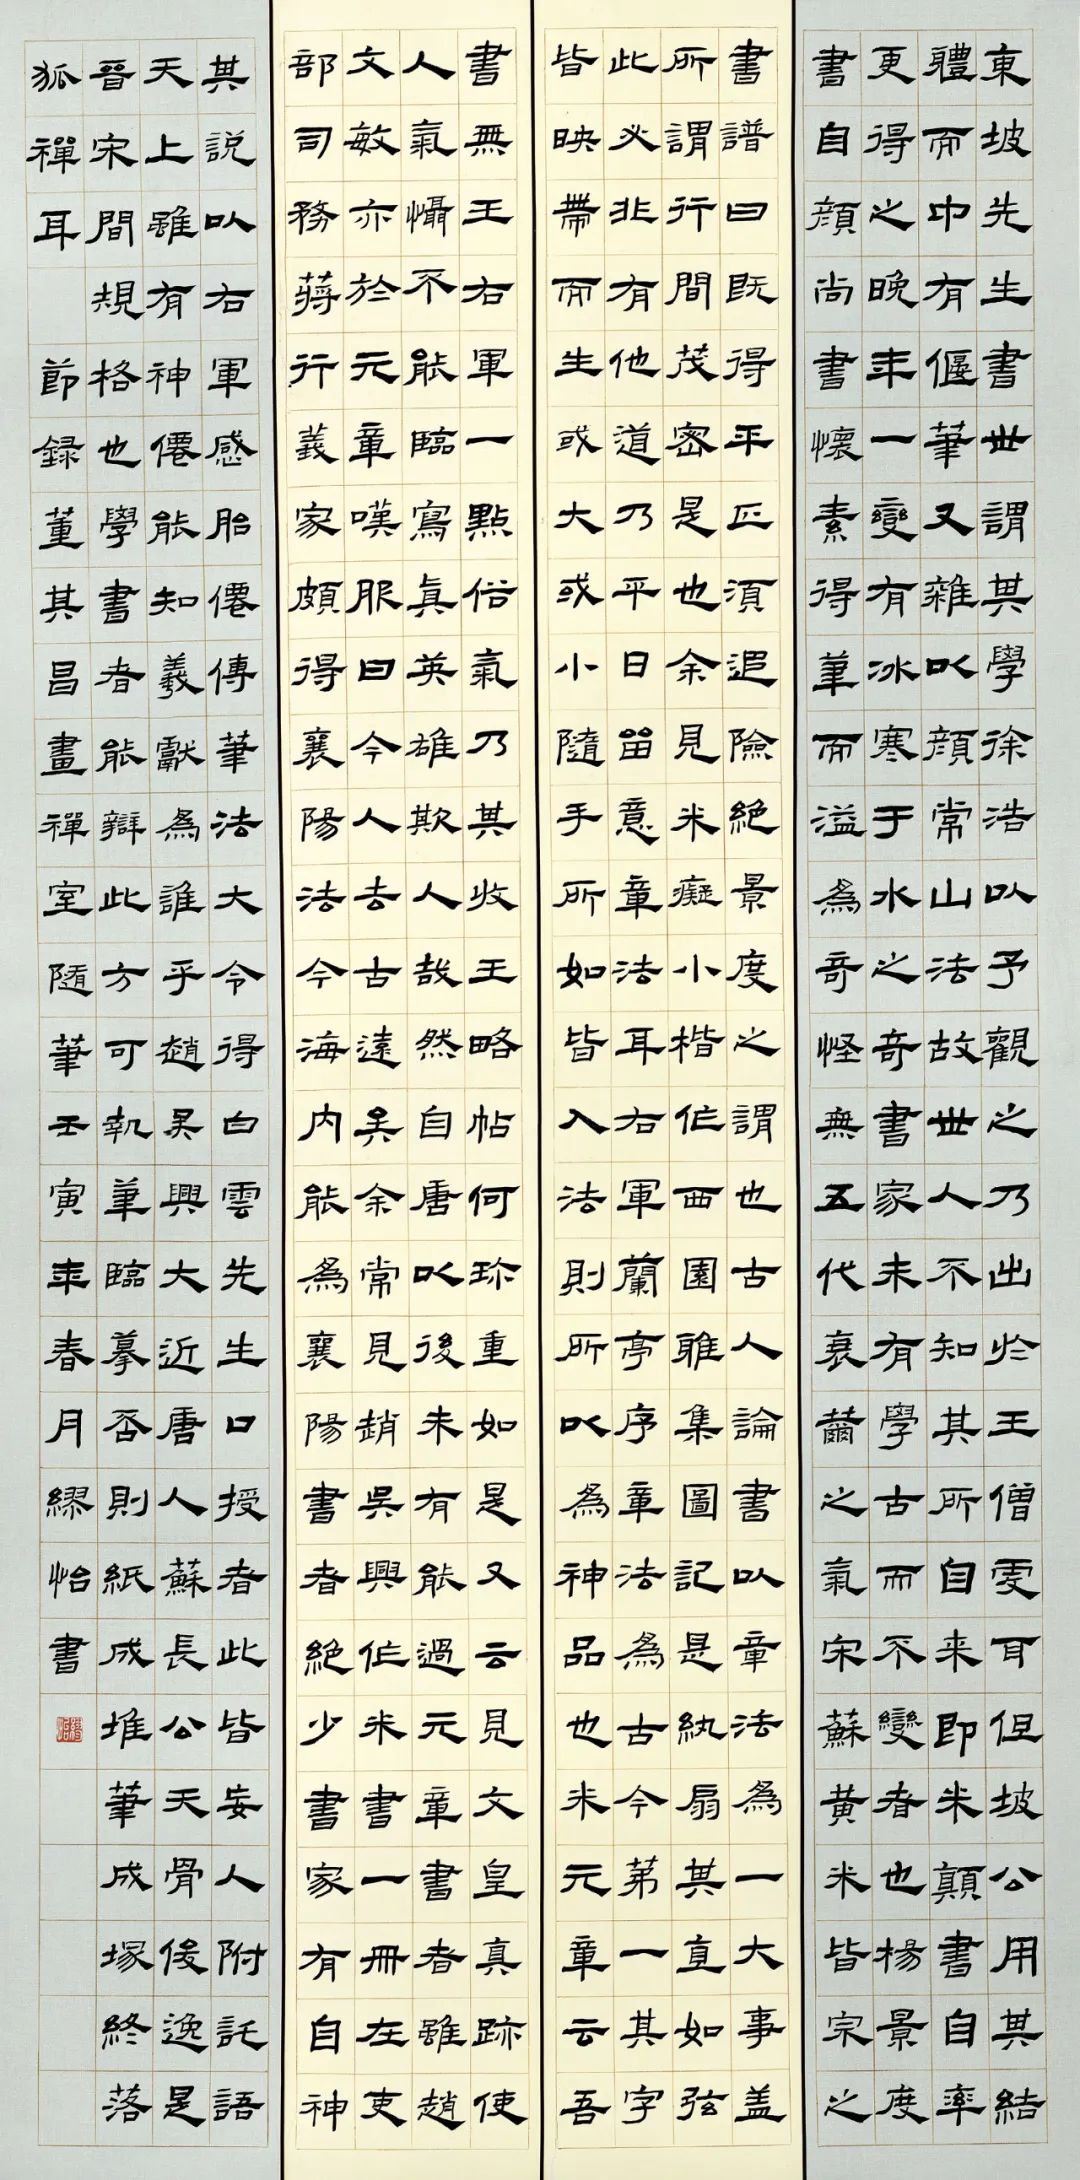 東坡先生書世謂其學徐浩以予觀之乃出於王僧虔耳但坡公用其結
體而中有偃筆又雜以顏常山法故世人不知其所自来即米顛書自率
更得之晚年一變有冰寒于水之奇書家未有學古而不變者也楊景度
書自顏尚書懷素得筆而溢為奇怪無五代衰薾之氣宋蘇黃米皆宗之
書譜曰既得平正須追險絕景度之謂也古人論書以章法為一大事盖
所謂行間茂密是也余見米癡小楷作西園雅集圖記是紈扇其直如弦
此必非有他道乃平日留意章法耳右軍蘭亭序章法為古今第一其字
皆映帶而生或大或小隨手所如皆入法則所以為神品也米元章云吾
書無王右軍一點俗氣乃其收王略帖何珍重如是又云見文皇真跡使
人氣懾不能臨寫真英雄欺人哉然自唐以後未有能過元章書者雖趙
文敏亦於元章嘆服曰今人去古遠矣余常見趙吳興作米書一冊在吏
部司務蔣行義家頗得襄陽法今海内能為襄陽書者絕少書家有自神
其說以右軍感胎僊傳筆法大令得白雲先生口授者此皆妄人附託語
天上雖有神僊能知羲獻為誰乎趙吳興大近唐人蘇長公天骨俊逸是
晉宋間規格也學書者能辯此方可執筆臨摹否則紙成堆筆成塚終落
狐禪耳 節録董其昌畫禪室隨筆壬寅年春月繆怡書
繆怡